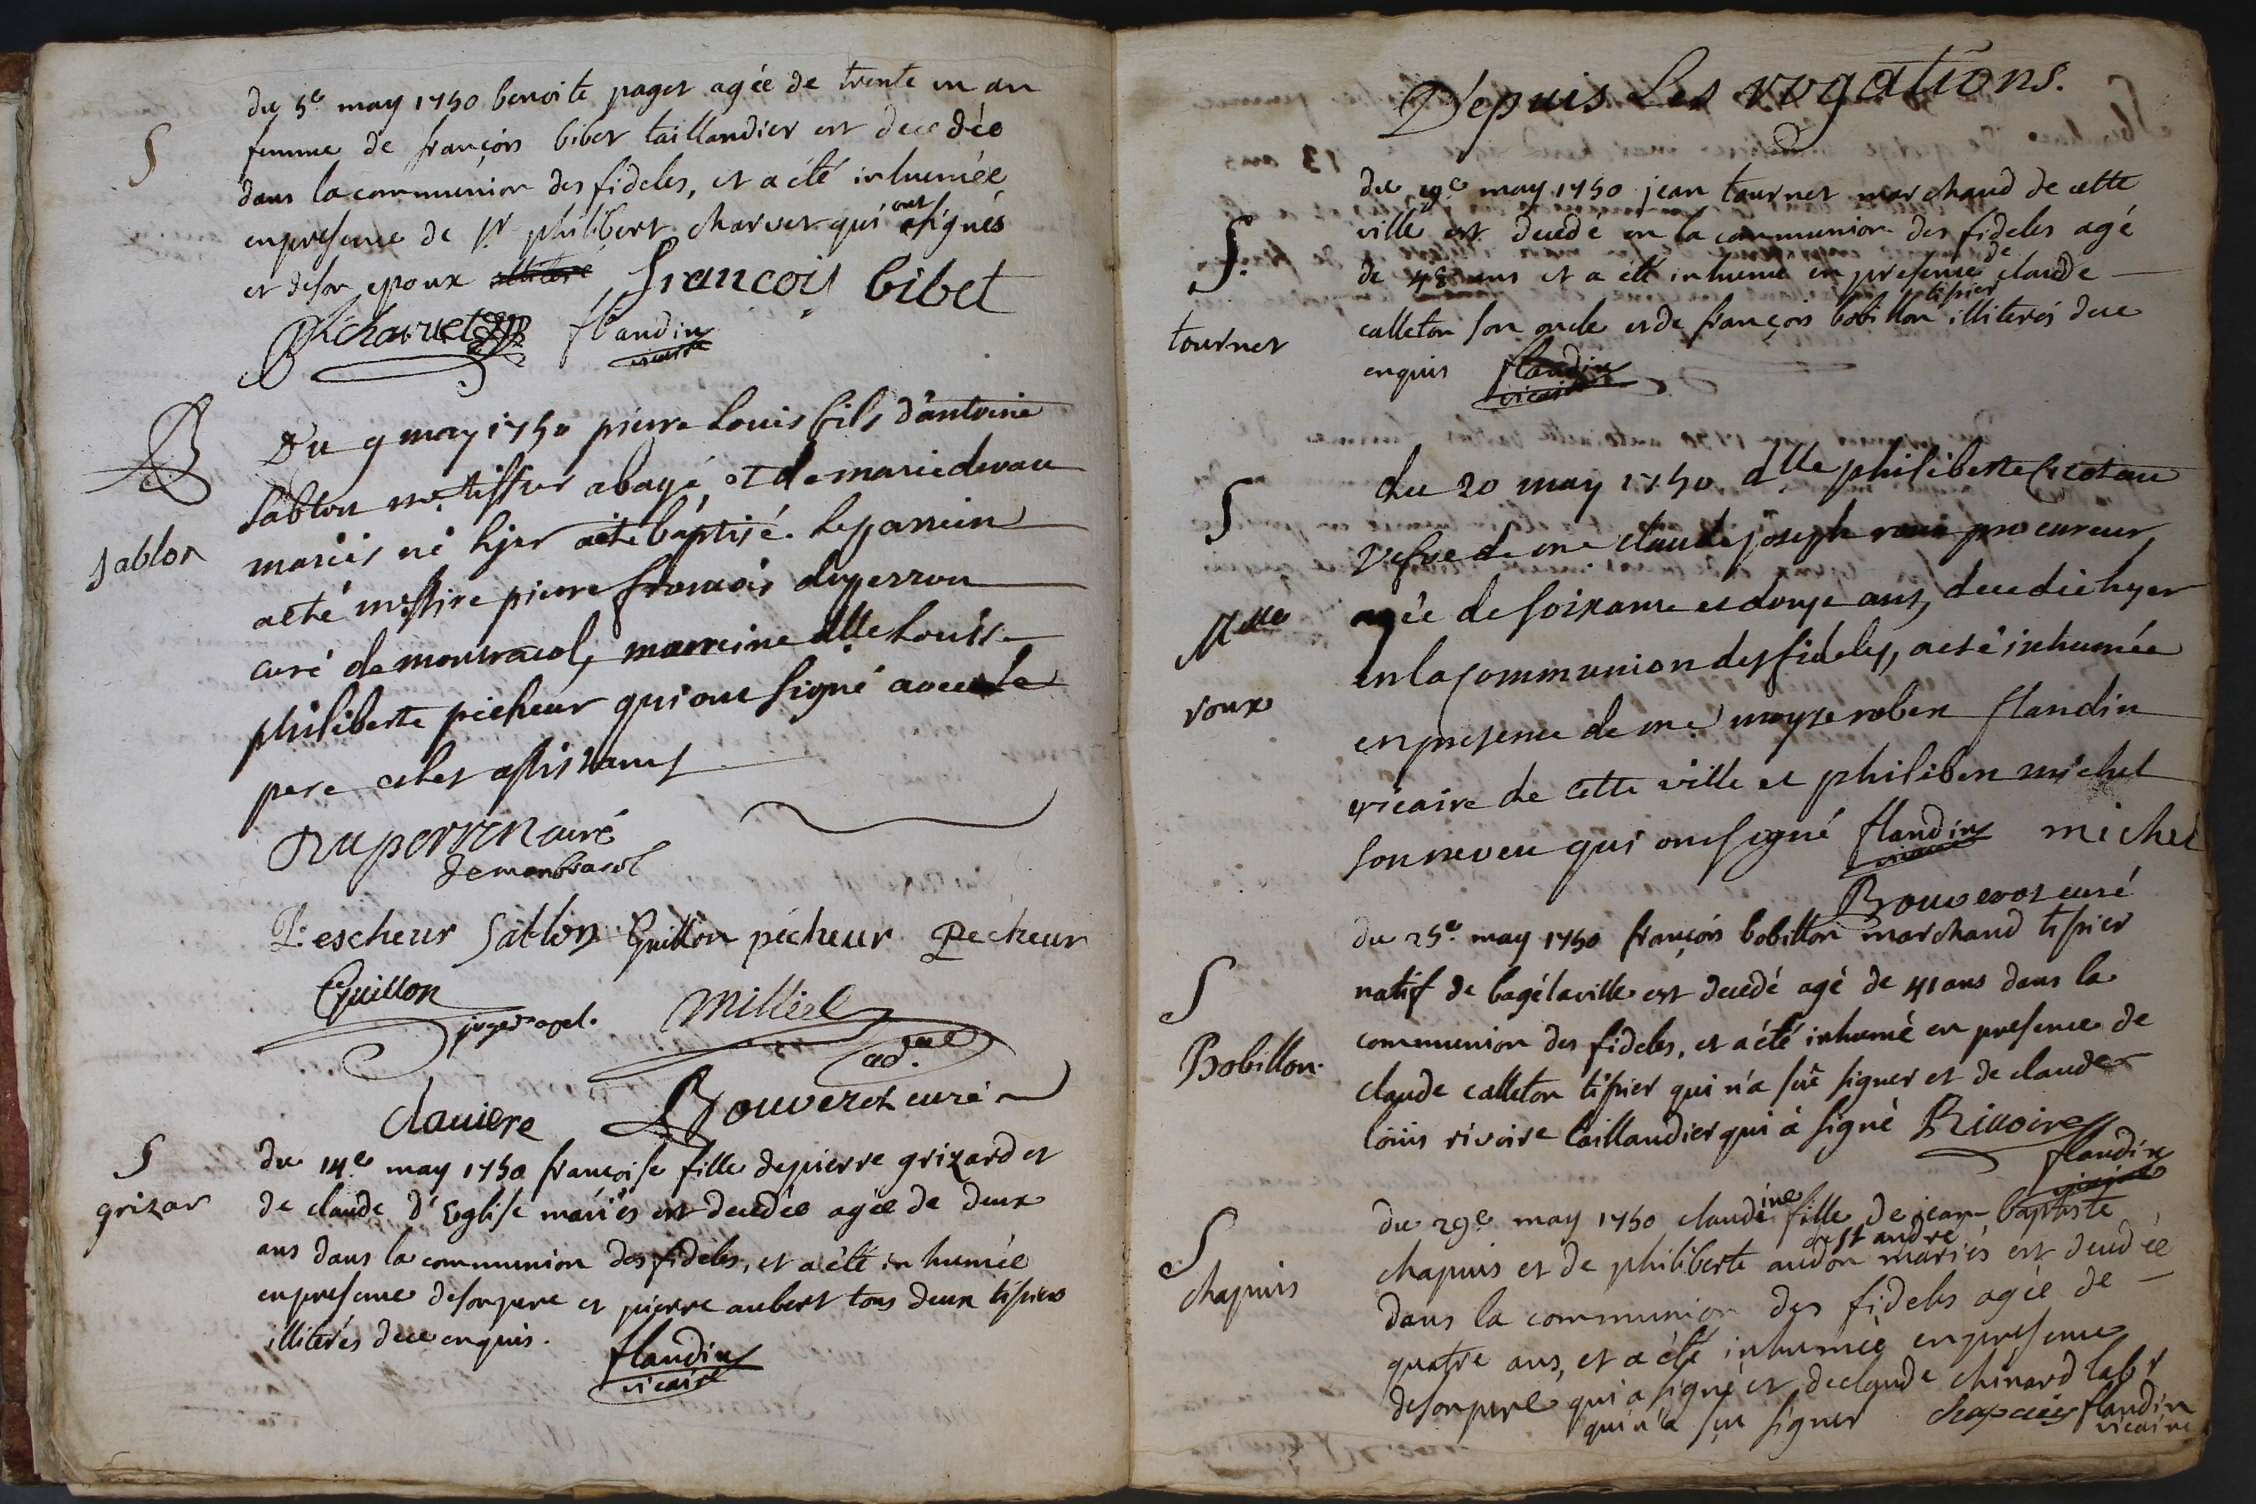 du 5e may 1750 benoite paget agée de trente un an
S
femme de françois bibet taillandier est decedée
dans la communion des fideles, et a été inhumée
en presence de Sr philibert charvet qui ont signés
et de son epoux françois bibet
PhCharvet flandin
vicaire
B
Sablon
Du 9 may 1750 pierre Louis fils d'antoine
Sablon me tissier a bagé et de marie
mariés né hjer a été baptisé. le parrein
a été messire pierre françois duperron
curé de montracol, marreine dlle Louise
philiberte pêcheur qui ont signé avec le
pere et les assistants
Duperron curé
de montracol
Pescheur Sablon Guillon pécheur Pecheur
Guillon
juge mage Milliet
ad.
claviere Bouveret curé
S
grizar
du 14e may 1750 françoise fille de pierre grizard et
de claude d'Eglise mariés est decedée agée de deux
ans dans la communion des fideles, et a été inhumée
en presence de son pere et pierre aubert tous deux tissiers
illiterés de ce enquis.
flandin
vicaire
Depuis Les rogations.
S.
tournet
du 19e may 1750 jean tournet marchand de cette
ville est decedé en la communion des fideles agé
de 48 ans et a été inhumé en presence de claude
calleton son oncle et de françois bobillon tissier illiterés de ce
enquis flandin
vicaire
S
Mlle
roux
du 20 may 1750 dlle philiberte
vefve de me claude joseph roux procureur
agée de soixante et douze ans, decedée hyer
en la communion des fideles, a eté inhumée
en presence de me moyse robert flandin
vicaire de cette ville et philibert michel
son neveu qui ont signé flandin michel
vicaire
Bouveret curé
S
Bobillon.
du 25e may 1750 françois bobillon marchand tissier
natif de bagélaville est decedé agé de 41 ans dans la
communion des fideles, et a été inhumé en presence de
claude calleton tissier qui n'a sçu signer et de claude
louis rivoire taillandier qui à signé Rivoire
flandin
vicaire
S
chapuis
du 29e may 1750 claudine fille de jean baptiste
chapuis et de philiberte audon de st andré mariés est decedée
dans la communion des fideles agée de
quatre ans, et a été inhumée en presence
de son pere qui a signé et de claude chinard labr
qui n'a sçu signer chapuis flandin
vicaire